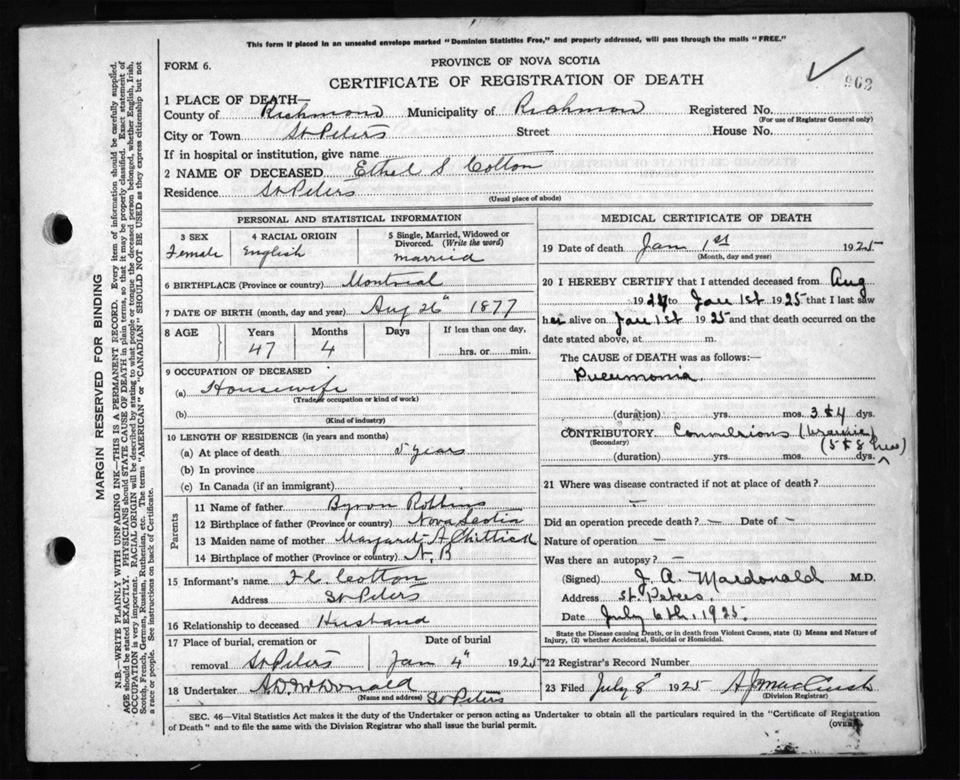 This form if placed in an unsealed envelope marked "Dominion Statistics Free," and properly addressed, will pass through the mails "FREE."
FORM 6.
PROVINCE OF NOVA SCOTIA
CERTIFICATE OF REGISTRATION OF DEATH
963
1 PLACE OF DEATH—
County of Richmond Municipality of Richmond Registered No.
(For use of Registrar General only)
City or Town St Peters Street House No.
If in hospital or institution, give name
2 NAME OF DECEASED Ethel S Cotton
Residence St Peters
(Usual place of abode)
PERSONAL AND STATISTICAL INFORMATION
3 SEX
Female
4 RACIAL ORIGIN
English
5 Single, Married, Widowed or Divorced. (Write the word)
married
6 BIRTHPLACE (Province or country) Montreal
7 DATE OF BIRTH (month, day and year) Aug 26th 1877
8 AGE Years Months Days If less than one day,
47 4 hrs. or min.
9 OCCUPATION OF DECEASED
(a) Housewife
(Trade, occupation or kind of work)
(b)
(Kind of industry)
10 LENGTH OF RESIDENCE (in years and months)
(a) At place of death 5 years
(b) In province
(c) In Canada (if an immigrant)
Parents
11 Name of father Byron Robbins
12 Birthplace of father (Province or country) Nova Scotia
13 Maiden name of mother Margaret A Chittick
14 Birthplace of mother (Province or country) N.B
15 Informant's name F.L. Cotton
Address St Peters
16 Relationship to deceased Husband
17 Place of burial, cremation or Date of burial
removal St Peters Jan 4th 1925
18 Undertaker A.D. McDonald
(Name and address) St Peters
MEDICAL CERTIFICATE OF DEATH
19 Date of death Jan 1st 1925
(Month, day and year)
20 I HEREBY CERTIFY that I attended deceased from Aug
1924 to Jan 1st 1925 that I last saw
her alive on Jan 1st 1925 and that death occurred on the
date stated above, at m.
The CAUSE of DEATH was as follows:—
Pneumonia
(duration) yrs. mos. 3 & 4 dys.
CONTRIBUTORY Convulsions (Uraemic)
(Secondary) (5 & 8 hrs)
(duration) yrs. mos. dys.
21 Where was disease contracted if not at place of death?
—
Did an operation precede death? — Date of —
Nature of operation —
Was there an autopsy? —
(Signed) J. A. Macdonald M.D.
Address St. Peters.
Date July 6th, 1925.
State the Disease causing Death, or in death from Violent Causes, state (1) Means and Nature of Injury, (2) whether Accidental, Suicidal or Homicidal.
22 Registrar's Record Number
23 Filed July 8th 1925
(Division Registrar)
SEC. 46—Vital Statistics Act makes it the duty of the Undertaker or person acting as Undertaker to obtain all the particulars required in the "Certificate of Registration
of Death" and to file the same with the Division Registrar who shall issue the burial permit. (OVER)
MARGIN RESERVED FOR BINDING
N.B.—WRITE PLAINLY WITH UNFADING INK—THIS IS A PERMANENT RECORD. Every item of information should be carefully supplied.
AGE should be stated EXACTLY. PHYSICIANS should STATE CAUSE OF DEATH in plain terms, so that it may be properly classified. Exact statement of
OCCUPATION is very important. RACIAL ORIGIN will be described by stating to what people or tongue the deceased person belonged, whether English, Irish,
Scotch, French, German, Russian, Ruthenian, etc. The terms "AMERICAN" or "CANADIAN" SHOULD NOT BE USED as they express citizenship but not
a race or people. See instructions on back of Certificate.